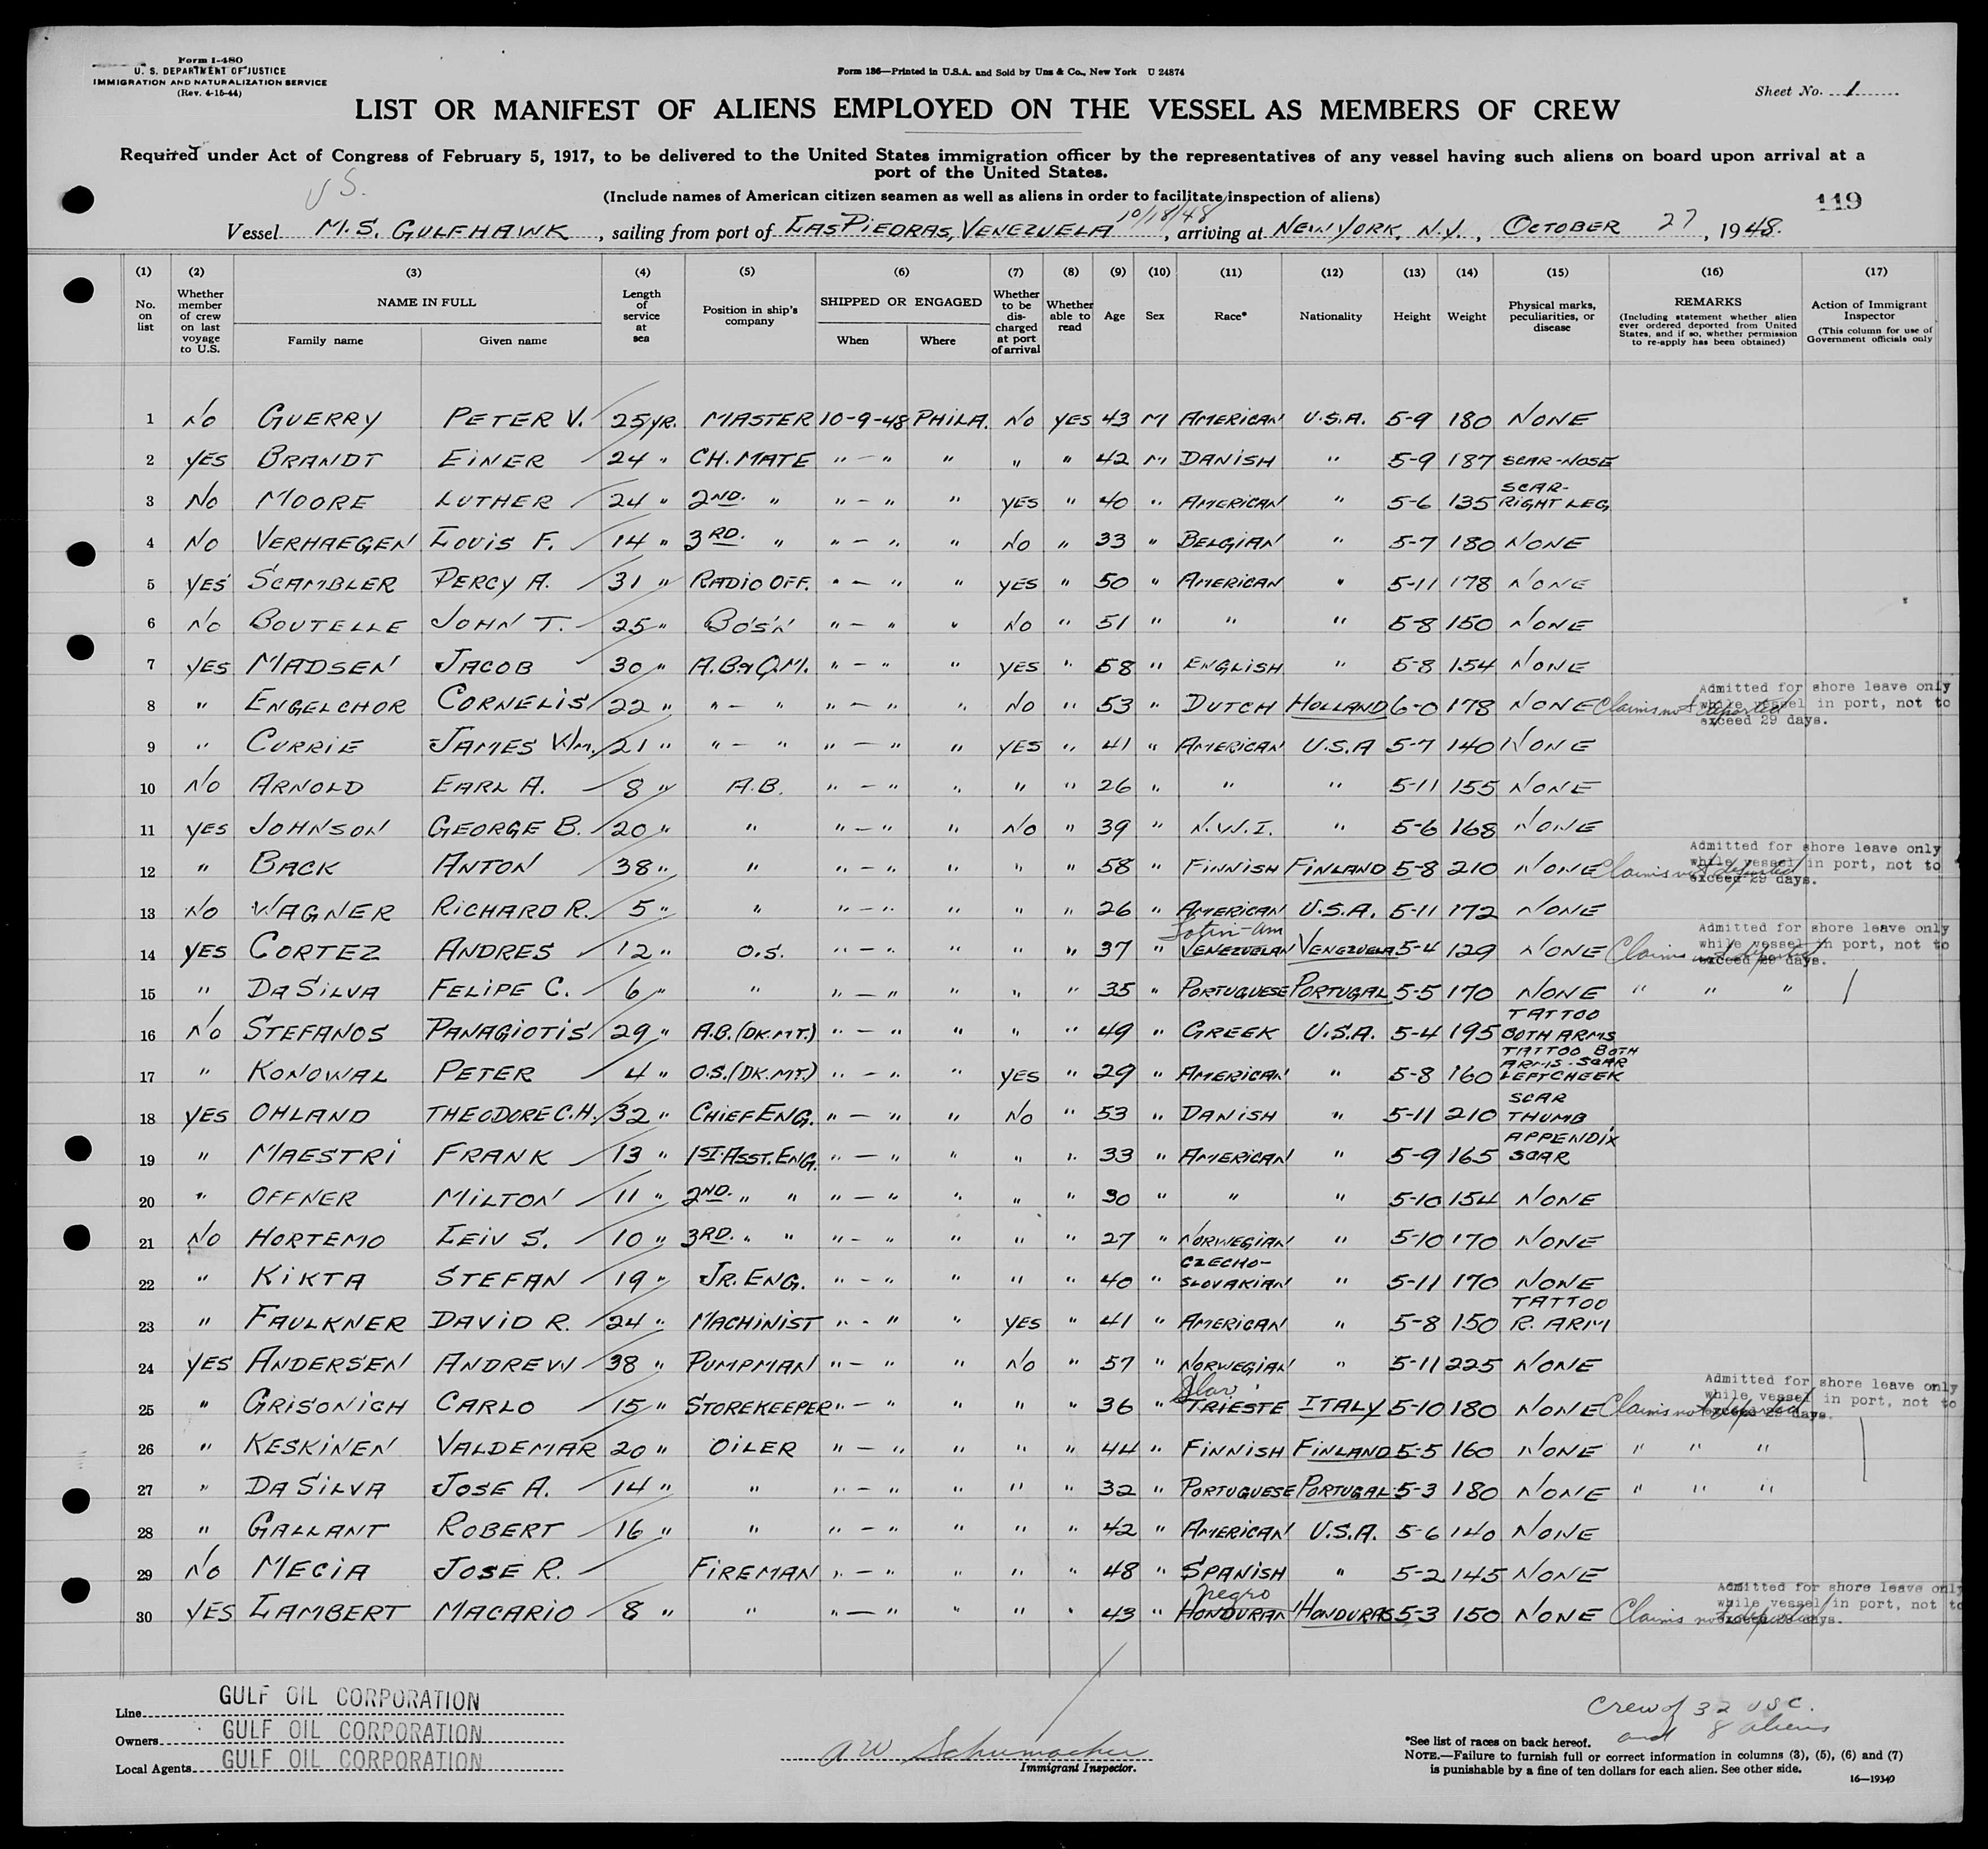 Form I-480
U. S. DEPARTMENT OF JUSTICE
IMMIGRATION AND NATURALIZATION SERVICE
(Rev. 4-15-44)
Form 136—Printed in U.S.A. and Sold by Unz & Co., New York U 24874
Sheet No. 1
LIST OR MANIFEST OF ALIENS EMPLOYED ON THE VESSEL AS MEMBERS OF CREW
Required under Act of Congress of February 5, 1917, to be delivered to the United States immigration officer by the representatives of any vessel having such aliens on board upon arrival at a
port of the United States.
U S.
(Include names of American citizen seamen as well as aliens in order to facilitate inspection of aliens)
119
10/18/48
Vessel M.S. GULFHAWK, sailing from port of LAS PIEDRAS, VENEZUELA, arriving at NEW YORK, N.Y., OCTOBER 27, 1948.
(1) (2) (3) (4) (5) (6) (7) (8) (9) (10) (11) (12) (13) (14) (15) (16) (17)
No. on list
Whether member of crew on last voyage to U.S.
NAME IN FULL
Family name Given name
Length of service at sea
Position in ship's company
SHIPPED OR ENGAGED
When Where
Whether to be discharged at port of arrival
Whether able to read
Age
Sex
Race*
Nationality
Height
Weight
Physical marks, peculiarities, or disease
REMARKS
(Including statement whether alien ever ordered deported from United States, and if so, whether permission to re-apply has been obtained)
Action of Immigrant Inspector
(This column for use of Government officials only
1 No GUERRY PETER V. 25 YR. MASTER 10-9-48 PHILA. No YES 43 M AMERICAN U.S.A. 5-9 180 NONE
2 YES BRANDT EINER 24 " CH. MATE " - " " " " 42 M DANISH " 5-9 187 SCAR-NOSE
3 No MOORE LUTHER 24 " 2ND. " " - " " YES " 40 " AMERICAN " 5-6 135 SCAR-RIGHT LEG
4 No VERHAEGEN LOUIS F. 14 " 3RD. " " - " " No " 33 " BELGIAN " 5-7 180 NONE
5 YES SCAMBLER PERCY A. 31 " RADIO OFF. " - " " YES " 50 " AMERICAN " 5-11 178 NONE
6 No BOUTELLE JOHN T. 25 " BO'S'N " - " " No " 51 " " " 5-8 150 NONE
7 YES MADSEN JACOB 30 " A.B.&Q.M. " - " " YES " 58 " ENGLISH " 5-8 154 NONE
8 " ENGELCHOR CORNELIS 22 " " - " " - " " No " 53 " DUTCH HOLLAND 6-0 178 NONE Claims not deported Admitted for shore leave only while vessel in port, not to exceed 29 days.
9 " CURRIE JAMES WM. 21 " " - " " - " " YES " 41 " AMERICAN U.S.A 5-7 140 NONE
10 No ARNOLD EARL A. 8 " A.B. " - " " " " 26 " " " 5-11 155 NONE
11 YES JOHNSON GEORGE B. 20 " " " - " " No " 39 " N.W.I. " 5-6 168 NONE
12 " BACK ANTON 38 " " " - " " " " 58 " FINNISH FINLAND 5-8 210 NONE Claims not deported Admitted for shore leave only while vessel in port, not to exceed 29 days.
13 No WAGNER RICHARD R. 5 " " " - " " " " 26 " AMERICAN U.S.A. 5-11 172 NONE
14 YES CORTEZ ANDRES 12 " O.S. " - " " " " 37 " Latin-Am VENEZUELAN VENEZUELA 5-4 129 NONE Claims not deported Admitted for shore leave only while vessel in port, not to exceed 29 days.
15 " DA SILVA FELIPE C. 6 " " " - " " " " 35 " PORTUGUESE PORTUGAL 5-5 170 NONE " " "
16 No STEFANOS PANAGIOTIS 29 " A.B. (DK.MT.) " - " " " " 49 " GREEK U.S.A. 5-4 195 TATTOO BOTH ARMS
17 " KONOWAL PETER 4 " O.S. (DK.MT.) " - " " YES " 29 " AMERICAN " 5-8 160 TATTOO BOTH ARMS-SCAR LEFT CHEEK
18 YES OHLAND THEODORE C.H. 32 " CHIEF ENG. " - " " No " 53 " DANISH " 5-11 210 SCAR THUMB
19 " MAESTRI FRANK 13 " 1ST. ASST. ENG. " - " " " " 33 " AMERICAN " 5-9 165 APPENDIX SCAR
20 " OFFNER MILTON 11 " 2ND. " " " - " " " " 30 " " " 5-10 154 NONE
21 No HORTEMO LEIV S. 10 " 3RD. " " " - " " " " 27 " NORWEGIAN " 5-10 170 NONE
22 " KIKTA STEFAN 19 " JR. ENG. " - " " " " 40 " CZECHO-SLOVAKIAN " 5-11 170 NONE
23 " FAULKNER DAVID R. 24 " MACHINIST " - " " YES " 41 " AMERICAN " 5-8 150 TATTOO R. ARM
24 YES ANDERSEN ANDREW 38 " PUMPMAN " - " " No " 57 " NORWEGIAN " 5-11 225 NONE
25 " GRISONICH CARLO 15 " STOREKEEPER " - " " " " 36 " Slav TRIESTE ITALY 5-10 180 NONE Claims not deported Admitted for shore leave only while vessel in port, not to exceed 29 days.
26 " KESKINEN VALDEMAR 20 " OILER " - " " " " 44 " FINNISH FINLAND 5-5 160 NONE " " "
27 " DA SILVA JOSE A. 14 " " " - " " " " 32 " PORTUGUESE PORTUGAL 5-3 180 NONE " " "
28 " GALLANT ROBERT 16 " " " - " " " " 42 " AMERICAN U.S.A. 5-6 140 NONE
29 No MECIA JOSE R. FIREMAN " - " " " " 48 " SPANISH " 5-2 145 NONE
30 YES LAMBERT MACARIO 8 " " " - " " " " 43 " negro HONDURAN HONDURAS 5-3 150 NONE Claims not deported Admitted for shore leave only while vessel in port, not to exceed 29 days.
Line GULF OIL CORPORATION
Owners GULF OIL CORPORATION
Local Agents GULF OIL CORPORATION
A W Schumacher
Immigrant Inspector.
Crew of 32 USC.
and 8 aliens
*See list of races on back hereof.
NOTE.—Failure to furnish full or correct information in columns (3), (5), (6) and (7)
is punishable by a fine of ten dollars for each alien. See other side.
16—19340